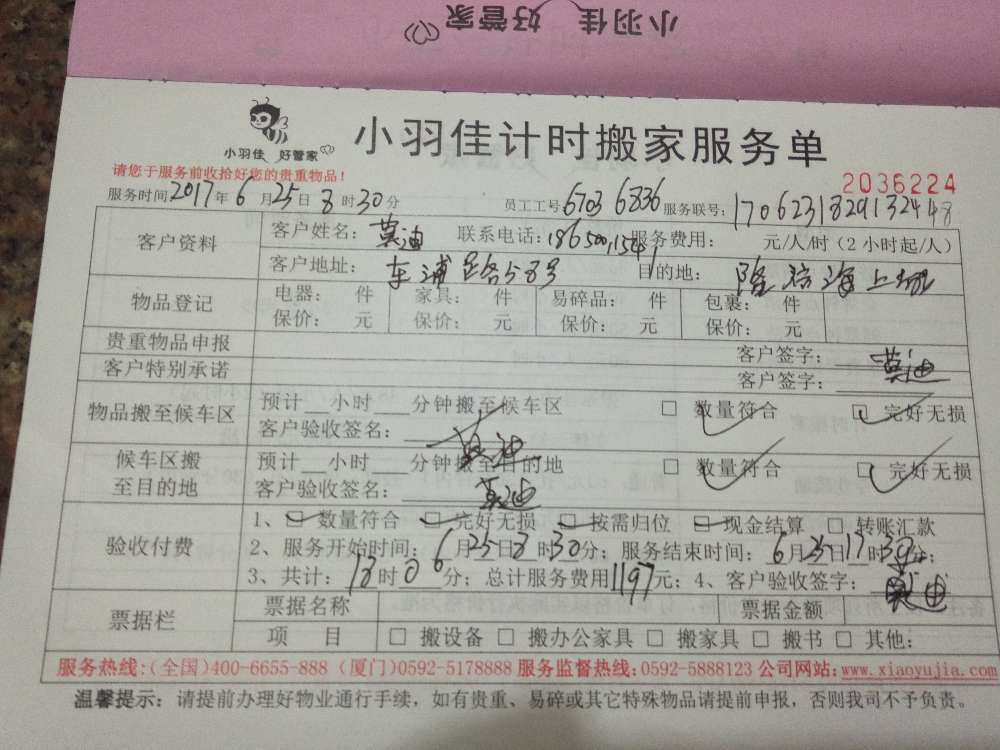 小羽佳 好管家
小羽佳 好管家
小羽佳计时搬家服务单
请您于服务前收拾好您的贵重物品!
2036224
服务时间2017年6月25日8时30分 员工工号6703 6836 服务联号:170623182913244 8
客户资料 客户姓名:莫迪 联系电话:186500,1541 服务费用: 元/人/时(2小时起/人)
客户地址:东浦路58号 目的地:
物品登记 电器: 件 家具: 件 易碎品: 件 包裹: 件
保价: 元 保价: 元 保价: 元 保价: 元
贵重物品申报 客户签字:莫迪
客户特别承诺 客户签字:
物品搬至候车区 预计__小时___分钟搬至候车区 □ 数量符合 □ 完好无损
客户验收签名:莫迪
候车区搬至目的地 预计__小时___分钟搬至目的地 □ 数量符合 □ 完好无损
客户验收签名:莫迪
验收付费 1、□ 数量符合 □ 完好无损 □ 按需归位 □ 现金结算 □ 转账汇款
2、服务开始时间:6月25日8时30分;服务结束时间:6月25日17时30分;
3、共计:18时0分;总计服务费用1197元;4、客户验收签字:莫迪
票据栏 票据名称 票据金额
项 目 □ 搬设备 □ 搬办公家具 □ 搬家具 □ 搬书 □ 其他:
服务热线:(全国)400-6655-888 (厦门)0592-5178888 服务监督热线:0592-5888123 公司网站:www.xiaoyujia.com
温馨提示:请提前办理好物业通行手续,如有贵重、易碎或其它特殊物品请提前申报,否则我司不予负责。